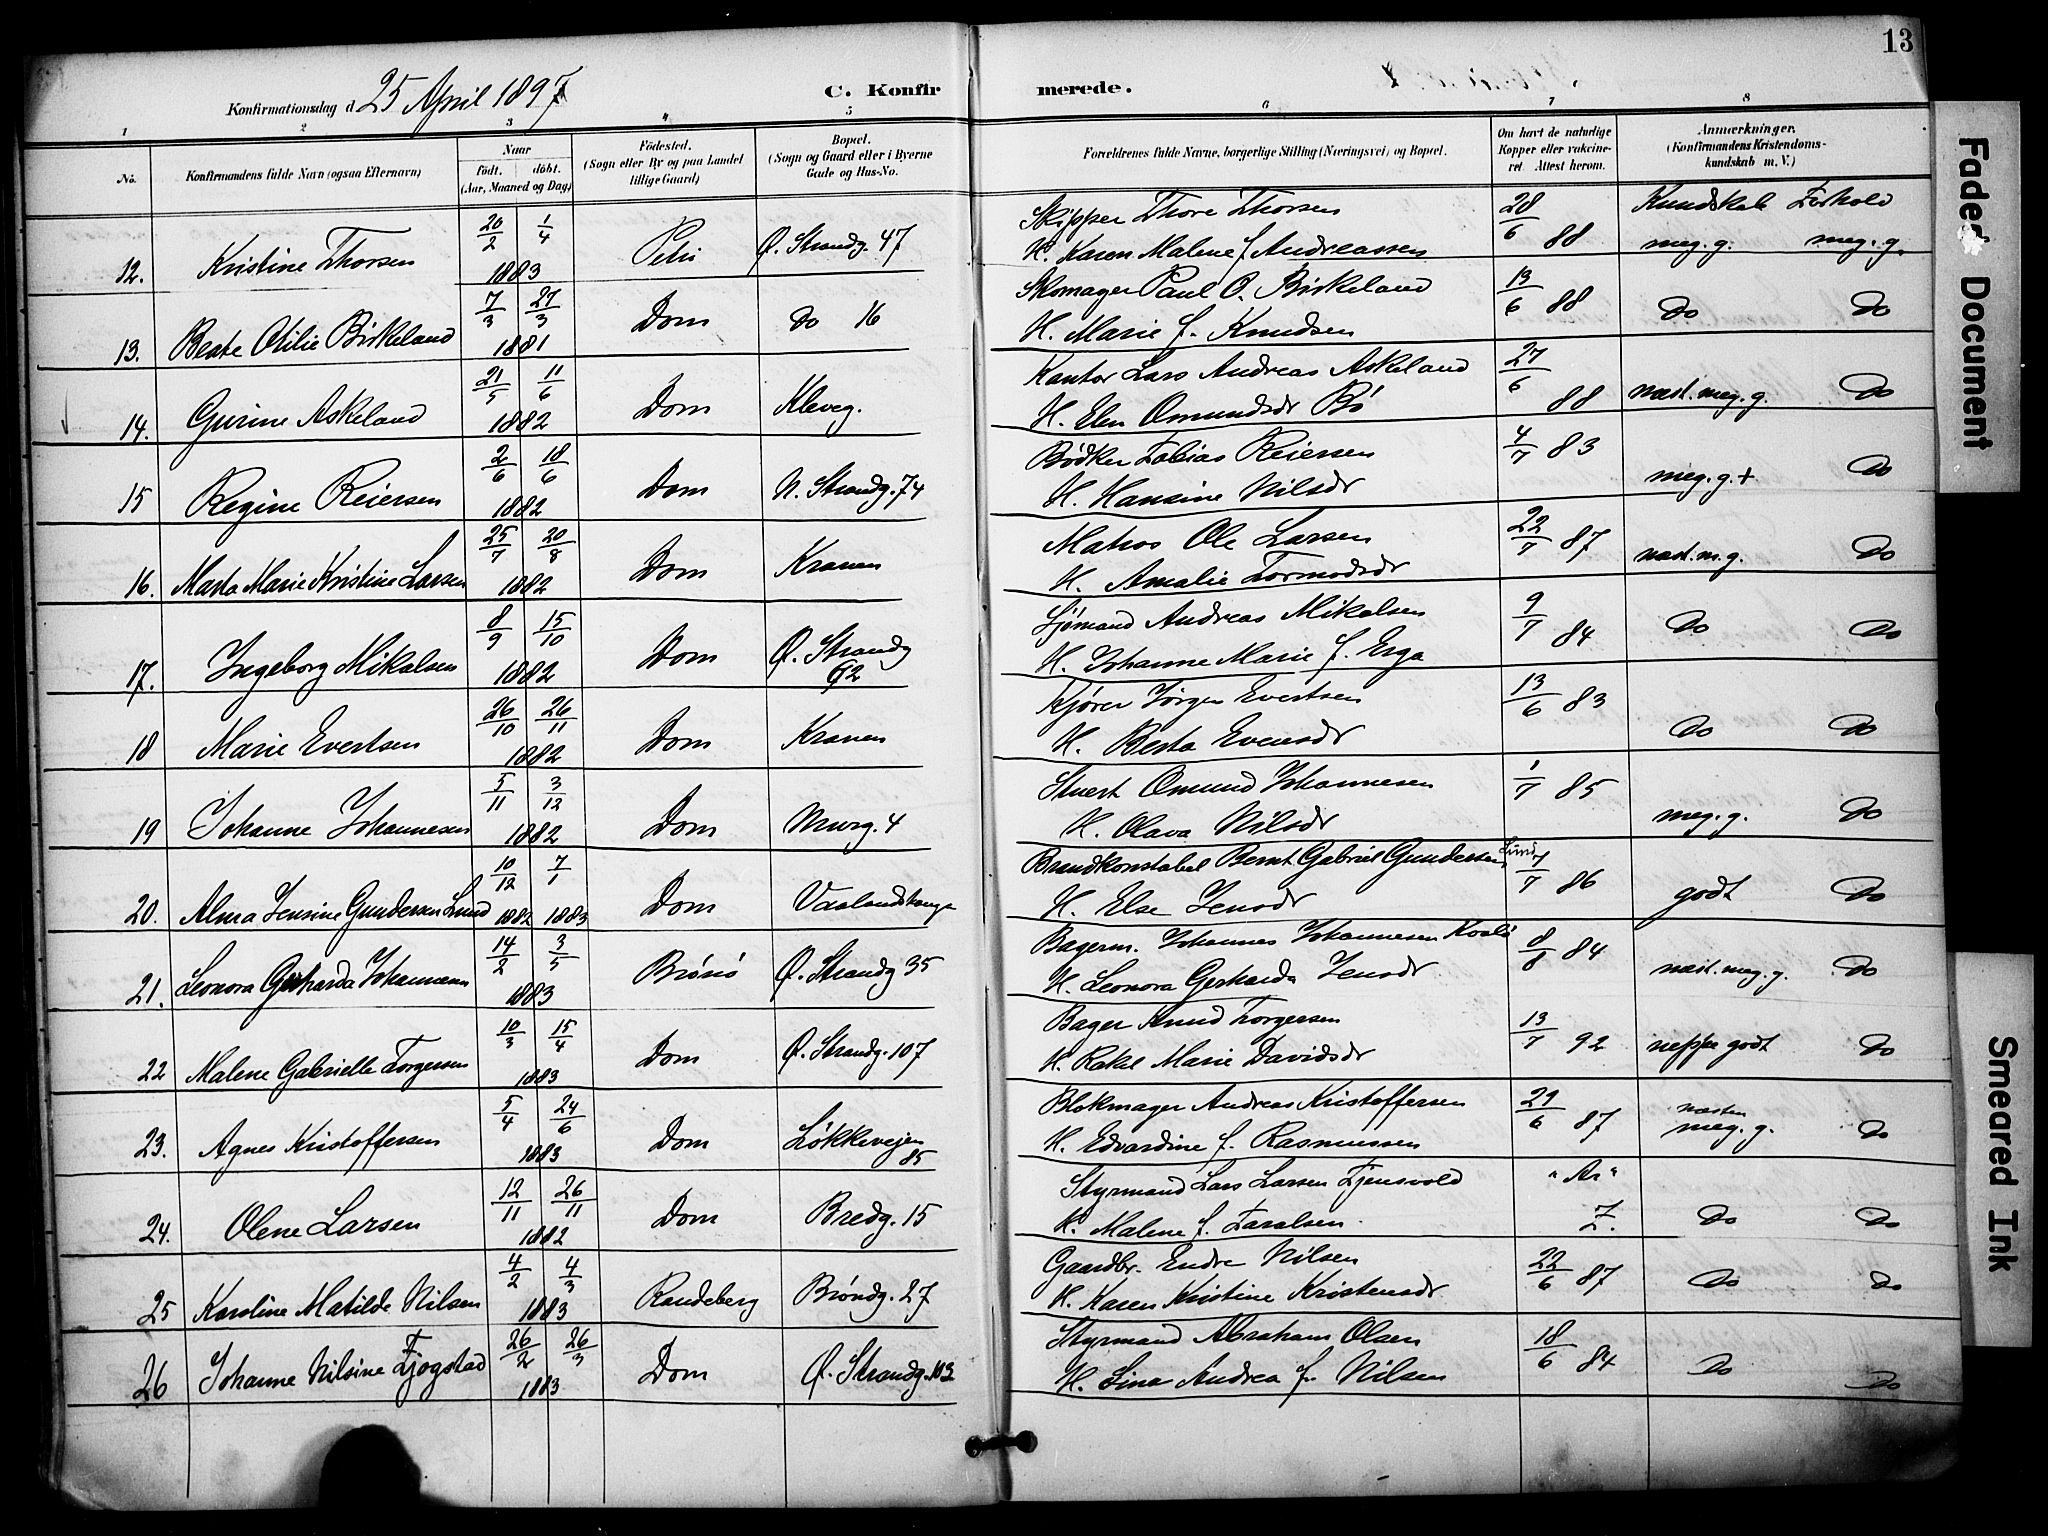 13
Konfirmationsdag d. 25 April 1897
C. Konfirmerede.
1 2 3 4 5 6 7 8
No. Konfirmandens fulde Navn (ogsaa Efternavn) Naar födt. döbt. (Aar, Maaned og Dag) Födested. (Sogn eller By og paa Landet tillige Gaard) Bopæl. (Sogn og Gaard eller i Byerne Gade og Hus-No. Forældrenes fulde Navne, borgerlige Stilling (Næringsvei) og Bopæl. Om havt de naturlige Kopper eller vakcineret. Attest herom. Anmærkninger. (Konfirmandens Kristendomskundskab m. V.)
Kundskab Forhold
12. Kristine Thorsen 20/2 1/4 1883 Petri Ø. Strandg. 47 Skipper Thore Thorsen 28/6 88 meg. g. meg. g.
H. Karen Malene f. Andreassen
13. Beate Otilie Birkeland 7/3 27/3 1881 Dom do 16 Skomager Paul O. Birkeland 13/6 88 do do
H. Marie f. Knudsen
14. Gurine Askeland 21/5 11/6 1882 Dom Kleveg. Kantor Lars Andreas Askeland 27/6 88 næst. meg. g. do
H. Elen Omundsdr Bø
15 Regine Reiersen 2/6 18/6 1882 Dom N. Strandg. 74 Bødker Tobias Reiersen 4/7 83 meg. g. + do
H. Hansine Nilsdr
16. Marta Marie Kristine Larsen 25/7 20/8 1882 Dom Kranen Matros Ole Larsen 22/7 87 næst. m. g. do
H. Amalie Tormodsdr
17. Ingeborg Mikalsen 8/9 15/10 1882 Dom Ø. Strandg 92 Sjømand Andreas Mikalsen 9/7 84 do do
H. Johanne Marie f. Erga
18 Marie Evertsen 26/10 26/11 1882 Dom Kranen Kjører Jørgen Evertsen 13/6 83 do do
H. Berta Evensdr
19 Johanne Johannesen 5/11 3/12 1882 Dom Murg. 4 Stuert Omund Johannesen 1/7 85 meg. g. do
H. Olava Nilsdr
20. Alma Jensine Gundersen Lund 10/12 1882 7/1 1883 Dom Brandkonstabel Bernt Gabriel Gundersen Lund 7/7 86 godt do
H. Else Jensdr
21. Leonora Gerharda Johannesen 14/2 3/5 1883 Ø. Strandg 35 Bagerm. Johannes Johannesen 8/8 84 næst. meg. g. do
H. Leonora Gerharda Jensdr
22 Malene Gabrielle Torgersen 10/3 15/4 1883 Dom Ø. Strandg. 107 Bager Knud Torgersen 13/7 92 neppe godt do
H. Rakel Marie Davidsdr
23. Agnes Kristoffersen 5/4 24/6 1883 Dom Løkkevejen 85 Blokmager Andreas Kristoffersen 29/6 87 næsten meg. g. do
H. Edvardine f. Rasmussen
24. Olene Larsen 12/11 26/11 1882 Dom Bredg. 15 Styrmand Lars Larsen Tjensvold "Ar" do do
H. Malene f. Taralsen
25 Karoline Matilde Nilsen 4/2 4/3 1883 Randeberg Brøndg. 27 Gaardbr. Endre Nilsen 22/6 87 do do
H. Karen Kristine Kristensdr
26 Johanne Nilsine Tjøgstad 26/2 26/3 1883 Dom Ø. Strandg. 103 Styrmand Abraham Olsen 18/6 84 do do
H. Lina Andrea f. Nilsen
Faded Document
Smeared Ink